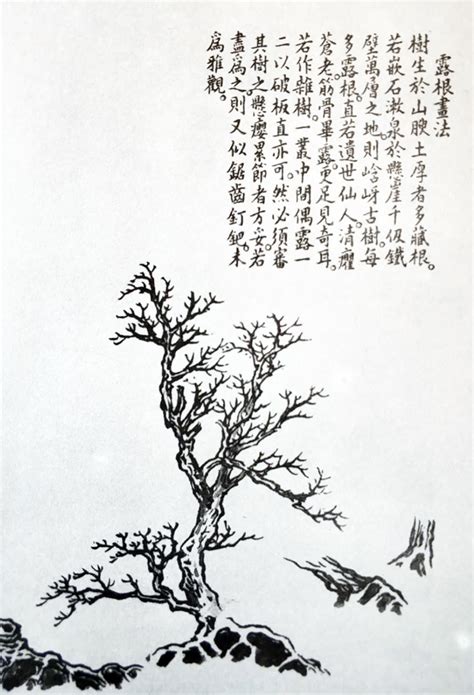 露根畫法
樹生於山腴土厚者多藏根。
若嵌石漱泉於懸崖千仭鐵
壁萬層之地。則峆岈古樹每
多露根。直若遺世仙人。清癯
蒼老。筋骨畢露。更足見奇耳。
若作雜樹一叢。中間偶露一
二以破板直亦可。然必須審
其樹之懸癭累節者方妥。若
盡爲之。則又似鋸齒釘鈀。未
爲雅觀。